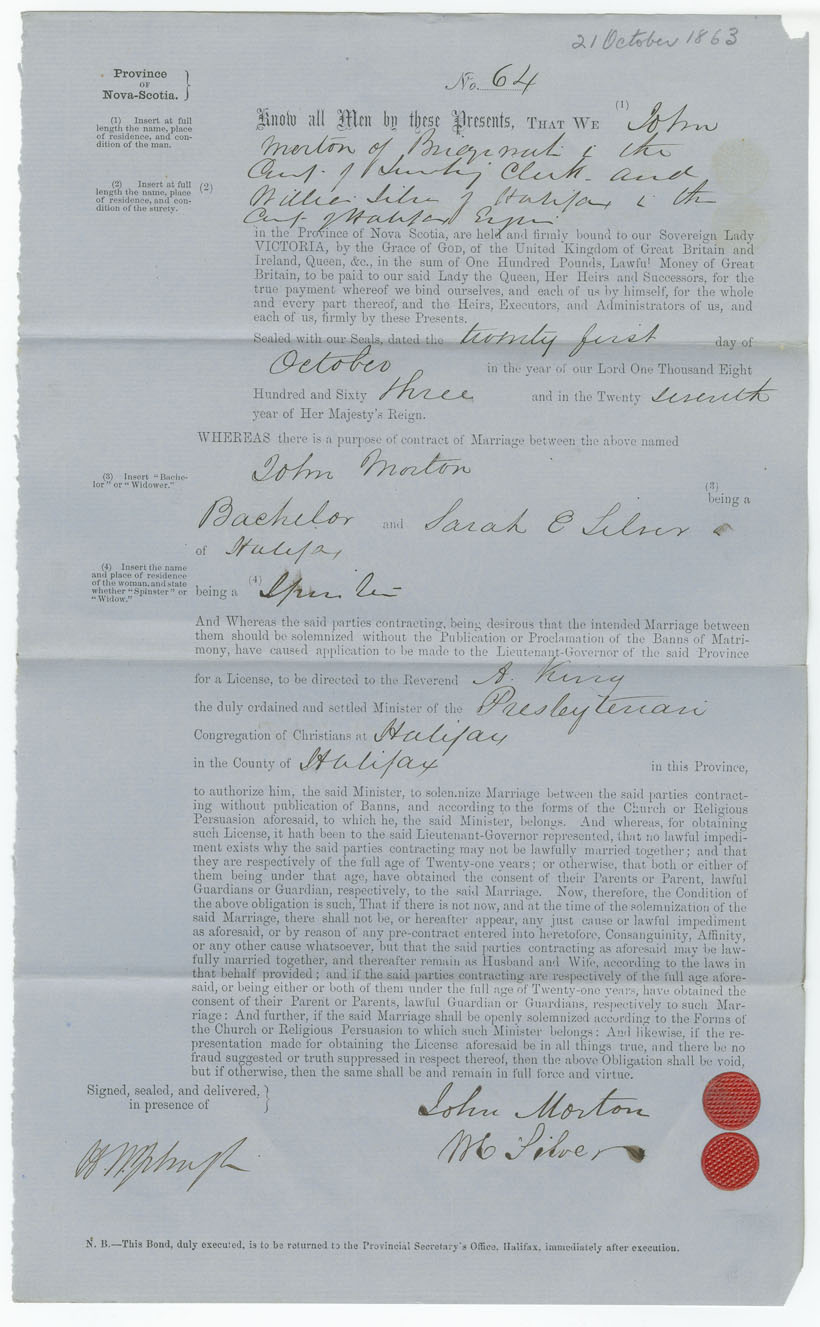 21 October 1863
Province
OF
Nova-Scotia.
No. 64
(1) Insert at full
length the name, place
of residence, and con-
dition of the man.
Know all Men by these Presents, THAT WE (1) John
Morton of in the
of Clerk and
(2) Insert at full
length the name, place
of residence, and con-
dition of the surety.
(2) William Silver of Halifax in the
of Halifax
in the Province of Nova Scotia, are held and firmly bound to our Sovereign Lady
VICTORIA, by the Grace of GOD, of the United Kingdom of Great Britain and
Ireland, Queen, &c., in the sum of One Hundred Pounds, Lawful Money of Great
Britain, to be paid to our said Lady the Queen, Her Heirs and Successors, for the
true payment whereof we bind ourselves, and each of us by himself, for the whole
and every part thereof, and the Heirs, Executors, and Administrators of us, and
each of us, firmly by these Presents.
Sealed with our Seals, dated the twenty first day of
October in the year of our Lord One Thousand Eight
Hundred and Sixty three and in the Twenty seventh
year of Her Majesty's Reign.
WHEREAS there is a purpose of contract of Marriage between the above named
John Morton
(3) Insert "Bache-
lor" or "Widower."
(3)
being a
Bachelor and Sarah E Silver
of Halifax
(4) Insert the name
and place of residence
of the woman, and state
whether "Spinster" or
"Widow."
being a (4) Spinster
And Whereas the said parties contracting, being desirous that the intended Marriage between
them should be solemnized without the Publication or Proclamation of the Banns of Matri-
mony, have caused application to be made to the Lieutenant-Governor of the said Province
for a License, to be directed to the Reverend A. King
the duly ordained and settled Minister of the Presbyterian
Congregation of Christians at Halifax
in the County of Halifax in this Province,
to authorize him, the said Minister, to solemnize Marriage between the said parties contract-
ing without publication of Banns, and according to the forms of the Church or Religious
Persuasion aforesaid, to which he, the said Minister, belongs. And whereas, for obtaining
such License, it hath been to the said Lieutenant-Governor represented, that no lawful impedi-
ment exists why the said parties contracting may not be lawfully married together; and that
they are respectively of the full age of Twenty-one years; or otherwise, that both or either of
them being under that age, have obtained the consent of their Parents or Parent, lawful
Guardians or Guardian, respectively, to the said Marriage. Now, therefore, the Condition of
the above obligation is such, That if there is not now, and at the time of the solemnization of the
said Marriage, there shall not be, or hereafter appear, any just cause or lawful impediment
as aforesaid, or by reason of any pre-contract entered into heretofore, Consanguinity, Affinity,
or any other cause whatsoever, but that the said parties contracting as aforesaid may be law-
fully married together, and thereafter remain as Husband and Wife, according to the laws in
that behalf provided; and if the said parties contracting are respectively of the full age afore-
said, or being either or both of them under the full age of Twenty-one years, have obtained the
consent of their Parent or Parents, lawful Guardian or Guardians, respectively to such Mar-
riage: And further, if the said Marriage shall be openly solemnized according to the Forms of
the Church or Religious Persuasion to which such Minister belongs: And likewise, if the re-
presentation made for obtaining the License aforesaid be in all things true, and there be no
fraud suggested or truth suppressed in respect thereof, then the above Obligation shall be void,
but if otherwise, then the same shall be and remain in full force and virtue.
Signed, sealed, and delivered,
in presence of
John Morton
Silver
N. B.—This Bond, duly executed, is to be returned to the Provincial Secretary's Office, Halifax, immediately after execution.